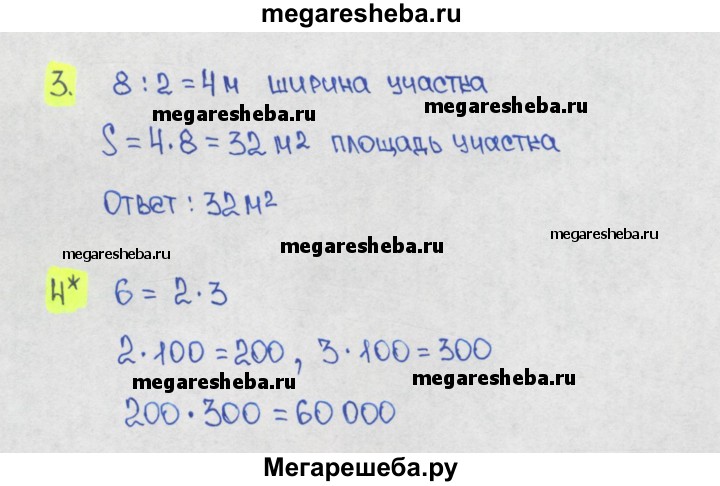 megaresheba.ru
3. 8 : 2 = 4 м ширина участка
megaresheba.ru megaresheba.ru
S = 4 · 8 = 32 м² площадь участка
Ответ : 32 м²
megaresheba.ru megaresheba.ru megaresheba.ru
4* 6 = 2 · 3
2 · 100 = 200 , 3 · 100 = 300
megaresheba.ru megaresheba.ru
200 · 300 = 60 000
Мегарешеба.ру